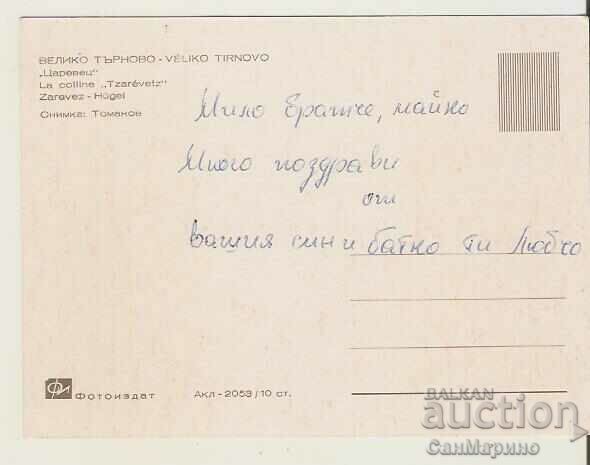 ВЕЛИКО ТЪРНОВО - VÉLIKO TIRNOVO
„Царевец“
La colline „Tzarévetz“
Zarevez - Hügel
Снимка: Томанов
Мило братче, майко
Много поздрави
от
вашия син и батко ти Любчо
Фотоиздат Акл - 2053 / 10 ст.
BALKAN
auction
СанМарино